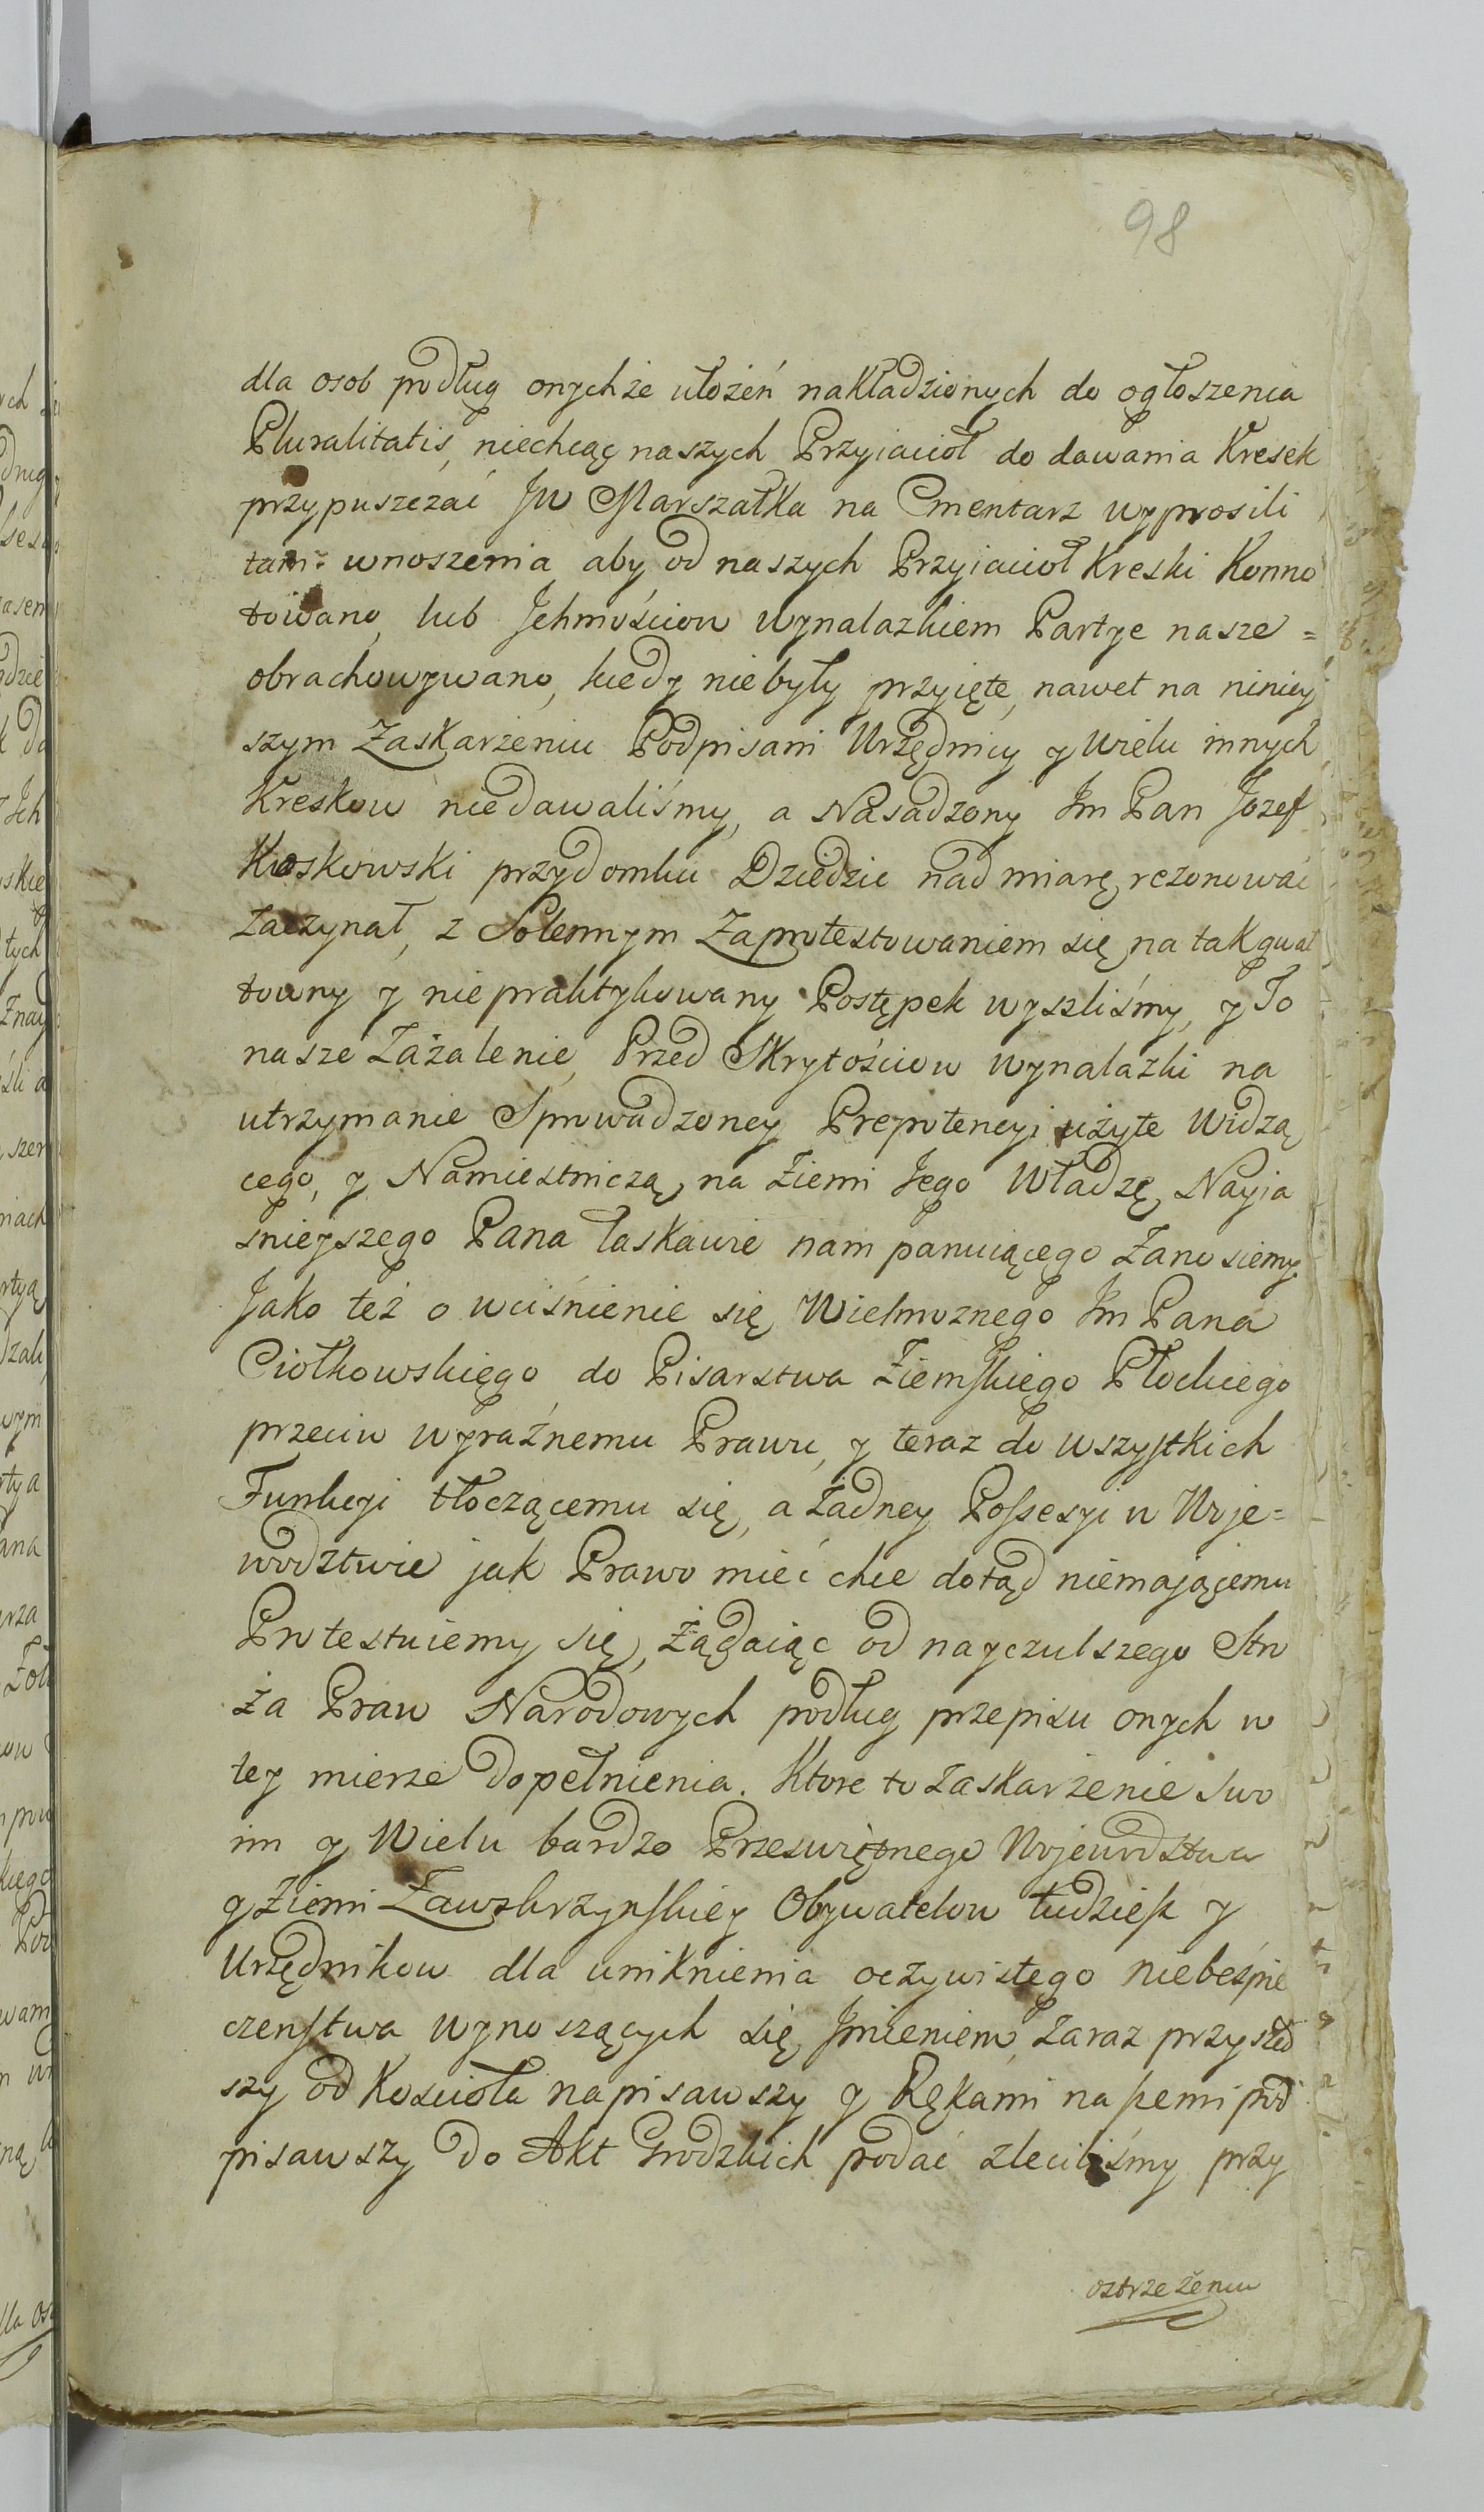 98
dla osob podług onychże ułożeń nakładzionych do ogłoszenia
Pluralitatis, niechcąc naszych Przyiacioł do dawania Kresek
przypuszczać JW Marszałka na Cmentarz wyprosili
tam wnoszenia aby od naszych Przyiacioł Kreski Konno
towano, lub Jchmościow wynalazkiem Partye nasze =
obrachowywano, kiedy niebyły przyięte, nawet na niniey
szym Zaskarżeniu Podpisani Urzędnicy y wielu innych
Kreskow niedawaliśmy, a Nasadzony Jm Pan Jozef
Kioskowski przydomku Dziedzic nad miarę rezonować
zaczynał, z Solennym Zaprotestowaniem się na tak gwał
towny y niepraktykowany Postępek wyszliśmy, y To
nasze Zażalenie, Przed Skrytościow wynalazki na
utrzymanie Sprowadzoney Prepotencyi użyte Widzą
cego, y Namiestniczą na Ziemi Jego Władzę Nayia
snieyszego Pana łaskawie nam panuiącego Zanosiemy.
Jako też o wciśnienie się Wielmoznego Jm Pana
Ciołkowskiego do Pisarstwa Ziemskiego Płockiego
przeciw wyraźnemu Prawu, y teraz do wszystkich
Funkcyi tłoczącemu się, a żadney Possesyi w Woje=
wodztwie jak Prawo mieć chce dotąd niemającemu
Protestuiemy się, Żądaiąc od nayczulszego Stro
ża Praw Narodowych podług przepisu onych w
tey mierze dopełnienia. Ktore to zaskarżenie swo
im y Wielu bardzo Prześwietnego Wojewodstwa
y Ziemi Zawskrzyńskiey Obywatelow tudziesz y
Urzędnikow dla uniknienia oczywistego niebeśpie
czenstwa wynoszących się Jmieniem, zaraz przyszed
szy od Kościoła napisawszy y Rękami naszemi pod
pisawszy do Akt Grodzkich podać zleciliśmy przy
ostrzeżeniu